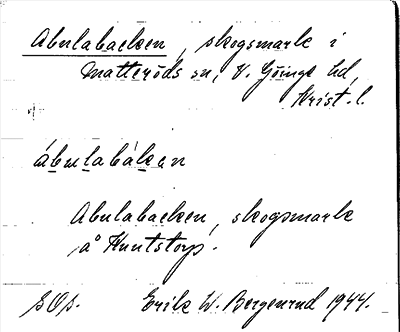 Abulabacken, skogsmark i
Matteröds sn, V. Göinge hd,
Krist. l.
ábulabákan
Abulabacken, skogsmark
å Huntstorp.
SOs. Erik W. Bergenrud 1944.